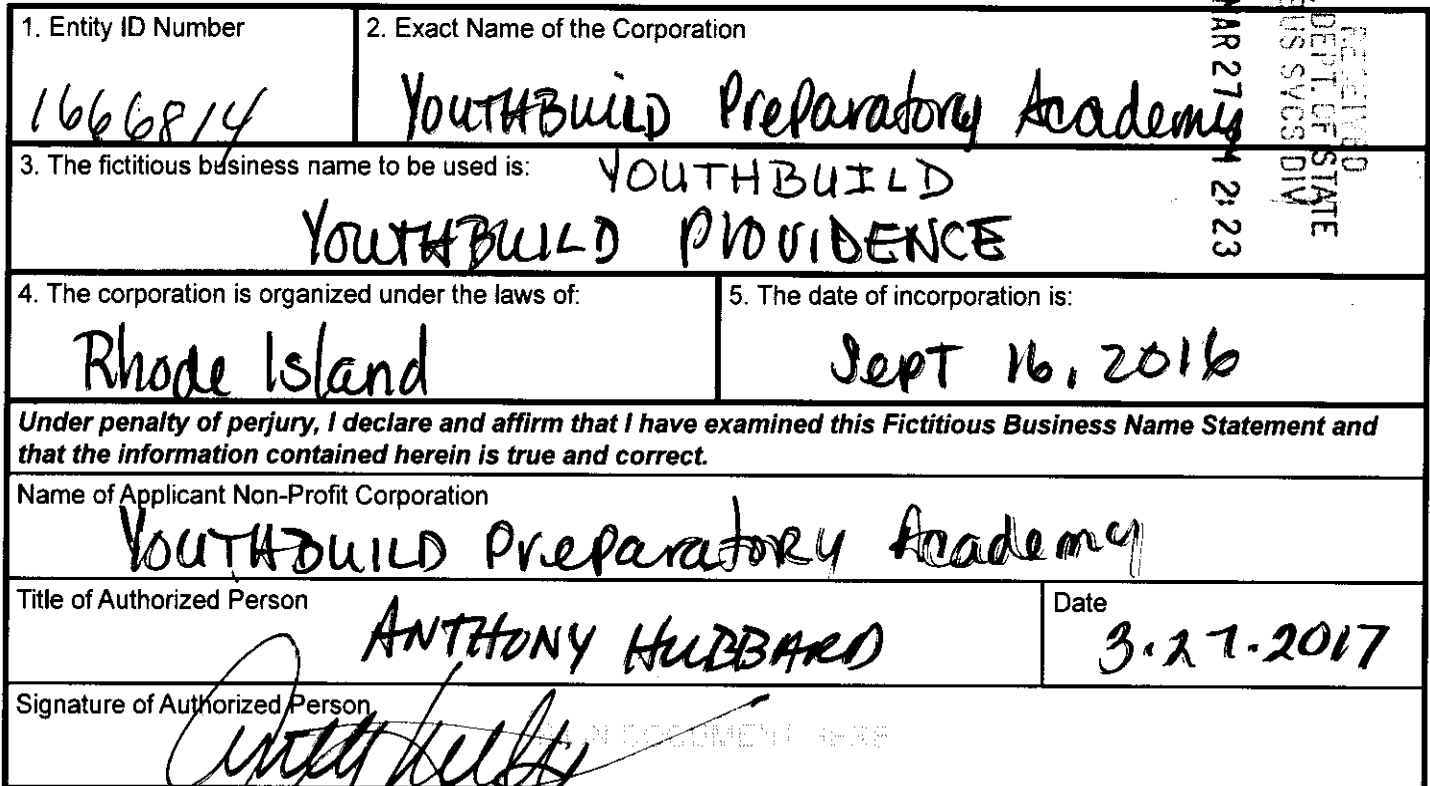 1. Entity ID Number
1666814
2. Exact Name of the Corporation
YOUTHBUILD Preparatory Academy
RECEIVED
DEPT. OF STATE
BUS SVCS DIV
MAR 27 2:23
3. The fictitious business name to be used is: YOUTHBUILD
YOUTHBUILD PROVIDENCE
4. The corporation is organized under the laws of:
Rhode Island
5. The date of incorporation is:
Sept 16, 2016
Under penalty of perjury, I declare and affirm that I have examined this Fictitious Business Name Statement and
that the information contained herein is true and correct.
Name of Applicant Non-Profit Corporation
YOUTHBUILD PreparatoRy Academy
Title of Authorized Person
ANTHONY HUBBARD
Date
3.27.2017
Signature of Authorized Person
DOCUMENT HERE